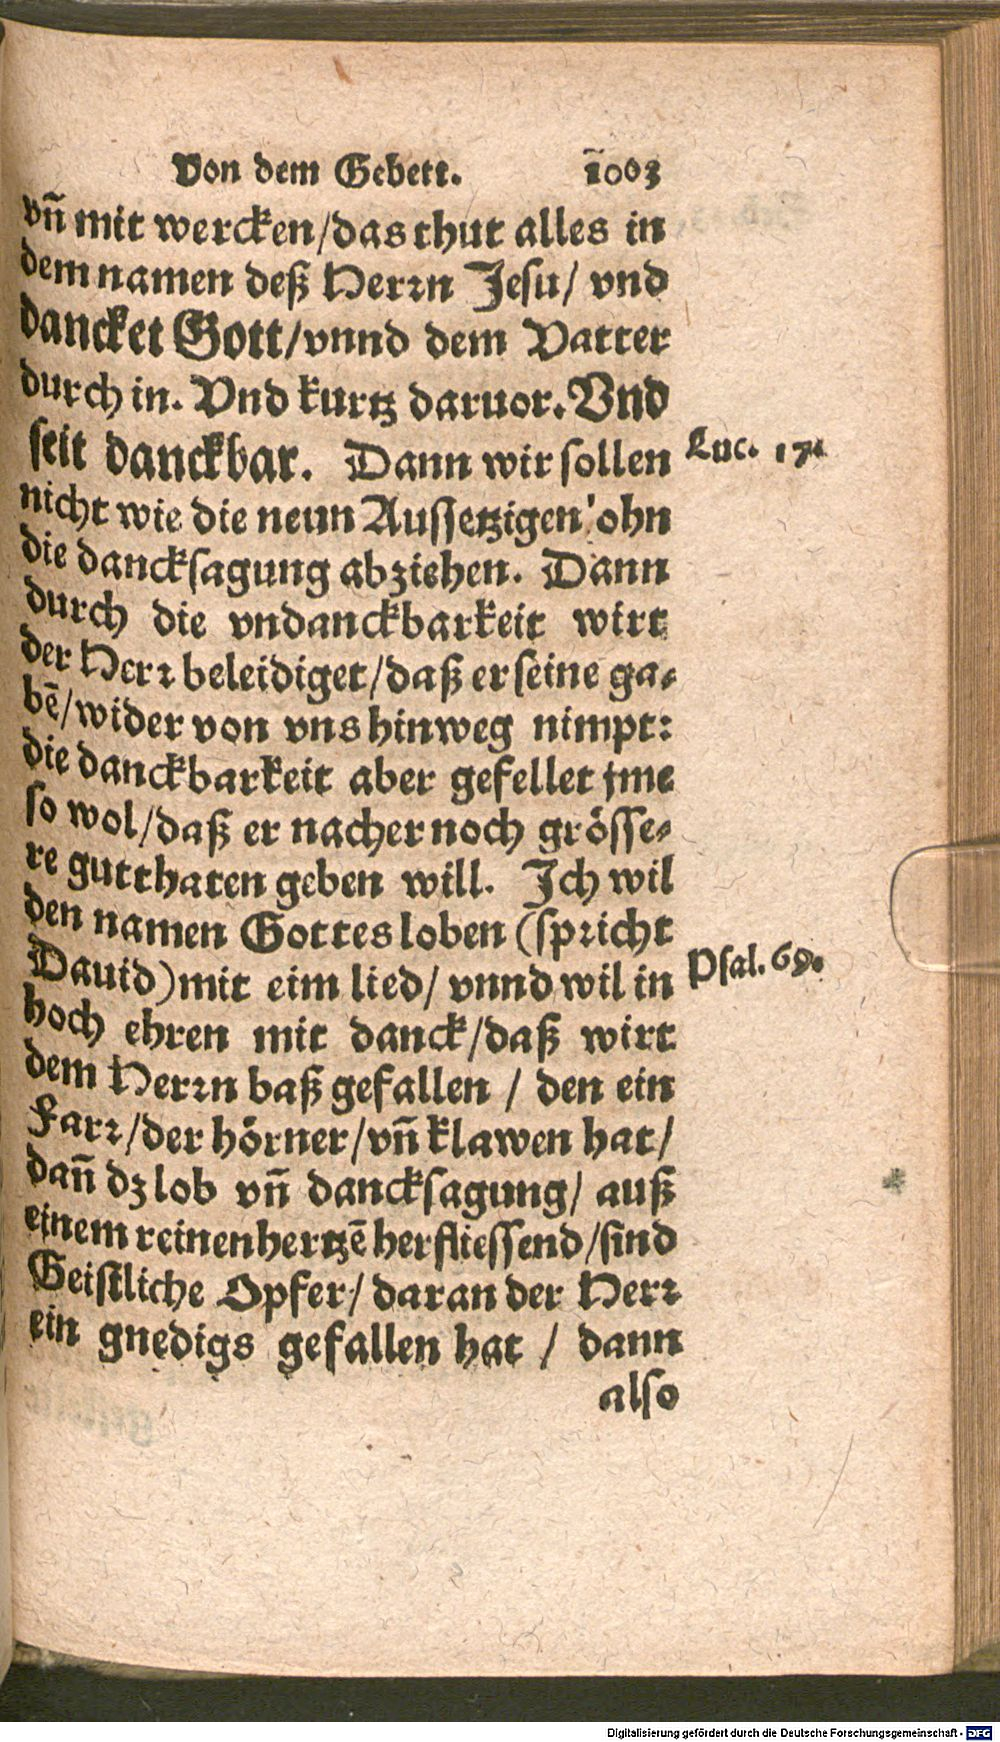 Von dem Gebett. 1003
vñ mit wercken/das thut alles in
dem namen deß Herꝛn Jesu/ vnd
dancket Gott/vnnd dem Vatter
durch in. Vnd kurtz daruor. Vnd
seit danckbar. Dann wir sollen
Luc. 17.
nicht wie die neun Aussetzigen ohn
die dancksagung abziehen. Dann
durch die vndanckbarkeit wirt
der Herꝛ beleidiget/daß er seine ga⸗
bẽ/wider von vns hinweg nimpt:
die danckbarkeit aber gefellet jme
so wol/daß er nacher noch grösse⸗
re gutthaten geben will. Ich wil
den namen Gottes loben (spꝛicht
Dauid) mit eim lied/ vnnd wil in
Psal. 69.
hoch ehren mit danck/daß wirt
dem Herꝛn baß gefallen / den ein
Farꝛ/der hörner/vñ klawen hat/
dañ dz lob vñ dancksagung/ auß
einem reinen hertzẽ herfliessend/sind
Geistliche Opfer/ daran der Herꝛ
ein gnedigs gefallen hat / dann
also
Digitalisierung gefördert durch die Deutsche Forschungsgemeinschaft - DFG